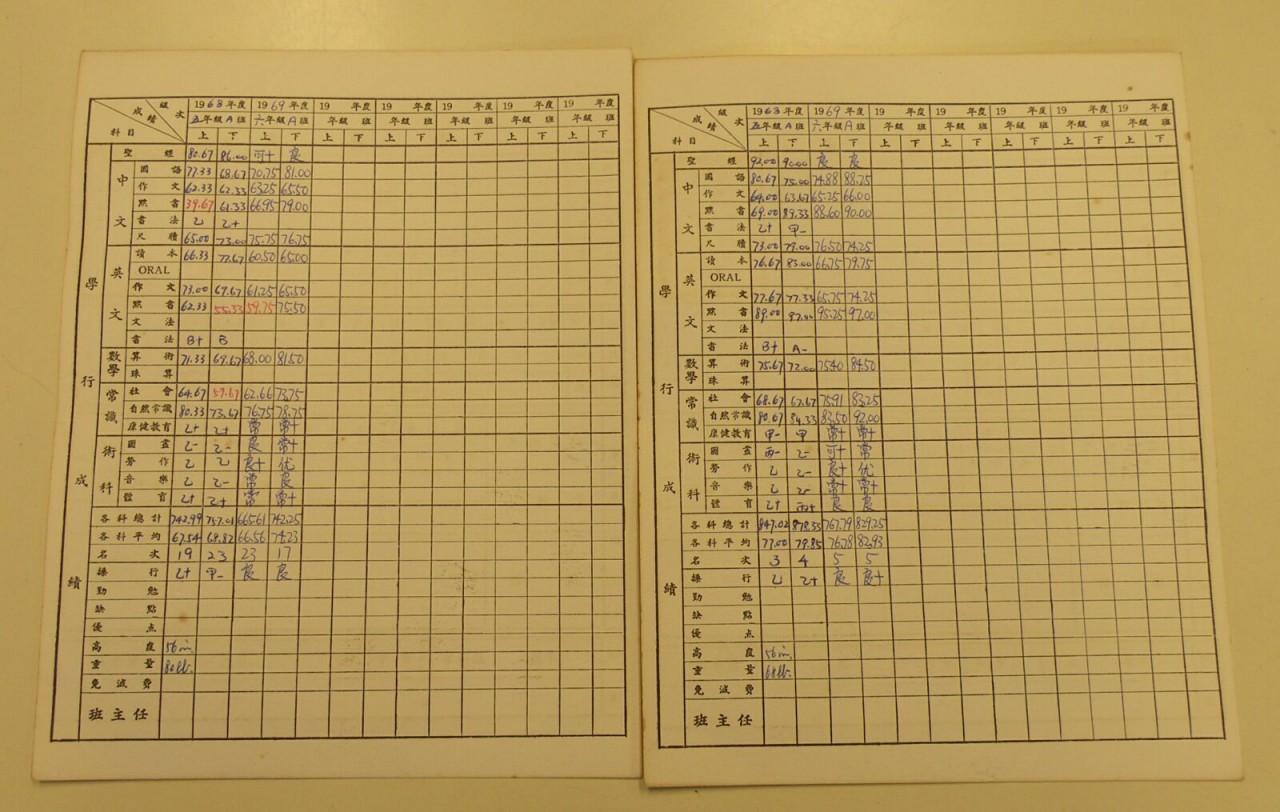 級次 成績 科目 1968年度 1969年度 19 年度 19 年度 19 年度 19 年度 19 年度
五年級A班 六年級A班 年級 班 年級 班 年級 班 年級 班 年級 班
上 下 上 下 上 下 上 下 上 下 上 下 上 下
學行成績
聖經 80.67 86.00 可+ 良
中文
國語 77.33 68.67 70.75 81.00
作文 62.33 62.33 63.25 65.50
默書 39.67 61.33 66.95 79.00
書法 乙 乙+
尺牘 65.00 73.00 75.75 76.75
英文
讀本 66.33 77.67 60.50 65.00
ORAL
作文 73.00 69.67 61.25 65.50
默書 62.33 55.33 59.75 75.50
文法
書法 B+ B
數學
算術 71.33 69.67 68.00 81.50
珠算
常識
社會 64.67 57.67 62.66 73.75
自然常識 80.33 73.67 76.75 78.75
康健教育 乙+ 乙+ 常 常+
術科
圖畫 乙- 乙- 良 常+
勞作 乙 乙 良+ 优
音樂 乙 乙- 常 良
體育 乙+ 乙+ 常 常+
各科總計 742.99 757.01 665.61 742.25
各科平均 67.54 68.82 66.56 74.23
名次 19 23 23 17
操行 乙+ 甲- 良 良
勤勉
缺點
優点
高度 56 in.
重量 80 lb.
免減費
班主任
級次 成績 科目 1968年度 1969年度 19 年度 19 年度 19 年度 19 年度 19 年度
五年級A班 六年級A班 年級 班 年級 班 年級 班 年級 班 年級 班
上 下 上 下 上 下 上 下 上 下 上 下 上 下
學行成績
聖經 92.00 90.00 良 良
中文
國語 80.67 75.00 74.88 88.75
作文 64.00 63.67 65.25 66.00
默書 69.00 89.33 88.60 90.00
書法 乙+ 甲-
尺牘 73.00 79.00 76.50 74.25
英文
讀本 76.67 83.00 66.75 79.75
ORAL
作文 77.67 77.33 65.75 74.25
默書 89.00 97.00 95.25 97.00
文法
書法 B+ A-
數學
算術 75.67 72.00 75.40 84.50
珠算
常識
社會 68.67 67.67 75.91 83.25
自然常識 80.67 84.33 83.50 92.00
康健教育 甲- 甲 常+ 常+
術科
圖畫 丙- 乙- 可+ 常
勞作 乙 乙- 良+ 优
音樂 乙 乙- 常+ 常+
體育 乙+ 良 良
各科總計 847.02 878.33 767.79 829.25
各科平均 77.00 79.85 76.78 82.93
名次 3 4 5 5
操行 乙 乙+ 良 良+
勤勉
缺點
優点
高度 56 in.
重量 68 lb.
免減費
班主任